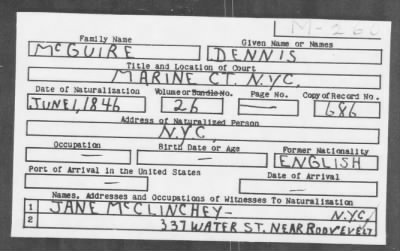 M-260
Family Name Given Name or Names
McGUIRE DENNIS
Title and Location of Court
MARINE CT. N.Y.C.
Date of Naturalization Volume or Bundle No. Page No. Copy of Record No.
JUNE 1, 1846 26 — 686
Address of Naturalized Person
N.Y.C.
Occupation Birth Date or Age Former Nationality
— — ENGLISH
Port of Arrival in the United States Date of Arrival
— —
Names, Addresses and Occupations of Witnesses To Naturalization
1 JANE McCLINCHEY — N.Y.C.
2 337 WATER ST. NEAR ROOSEVELT